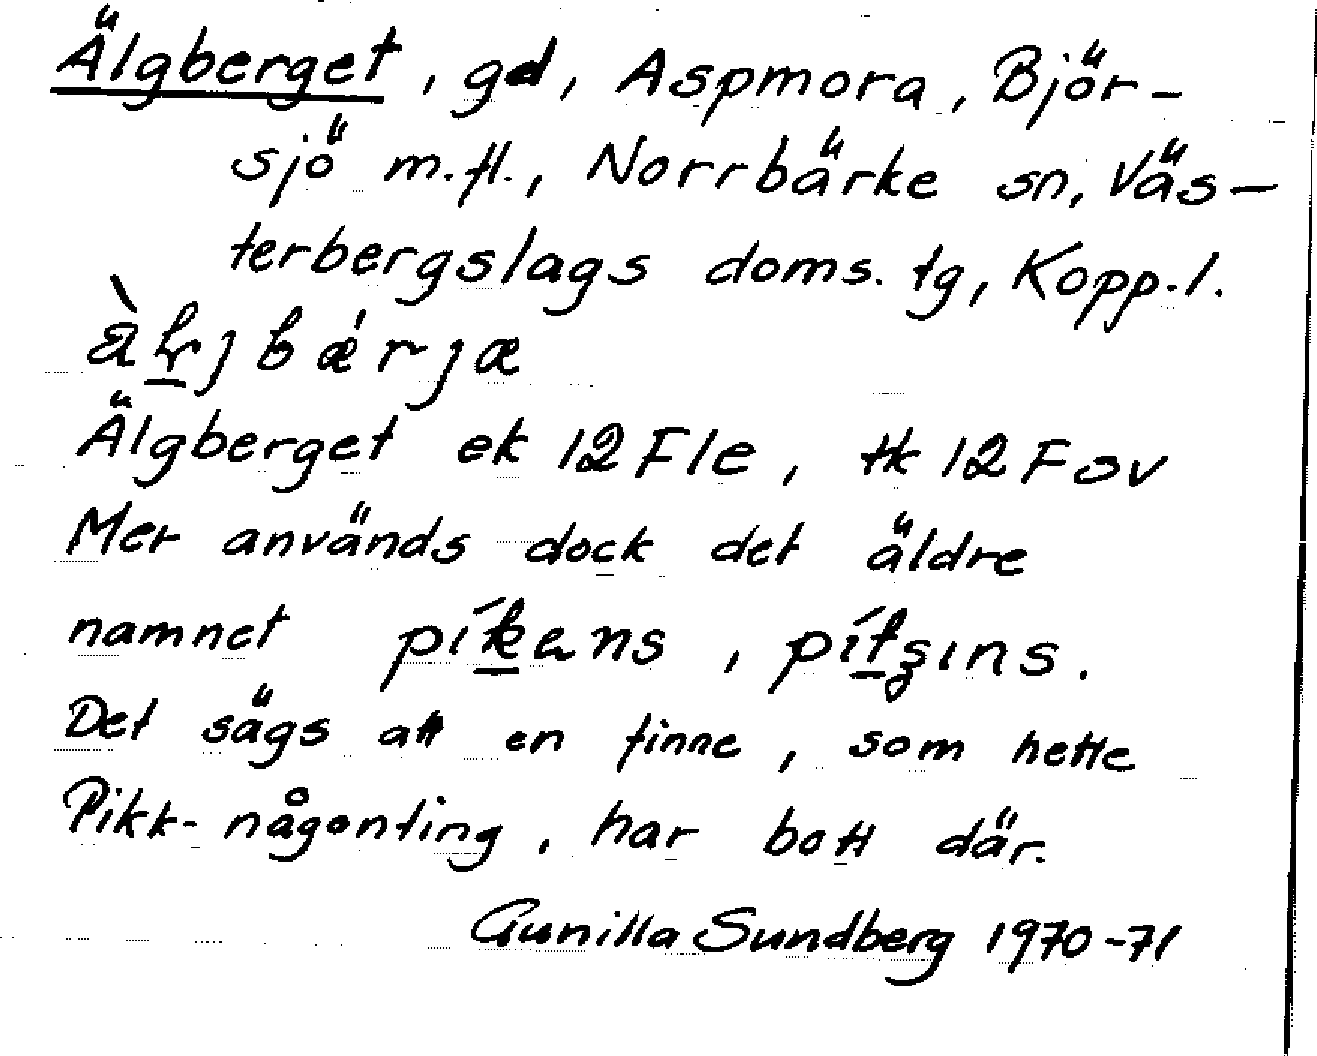 Älgberget, gd, Aspmora, Björ-
sjö m.fl., Norrbärke sn, Väs-
terbergslags doms. tg, Kopp. l.
Älgberget ek 12 F 1e, tk 12 F ov
Mer används dock det äldre
namnet
Det sägs att en finne, som hette
Pikk-någonting, har bott där.
Gunilla Sundberg 1970-71